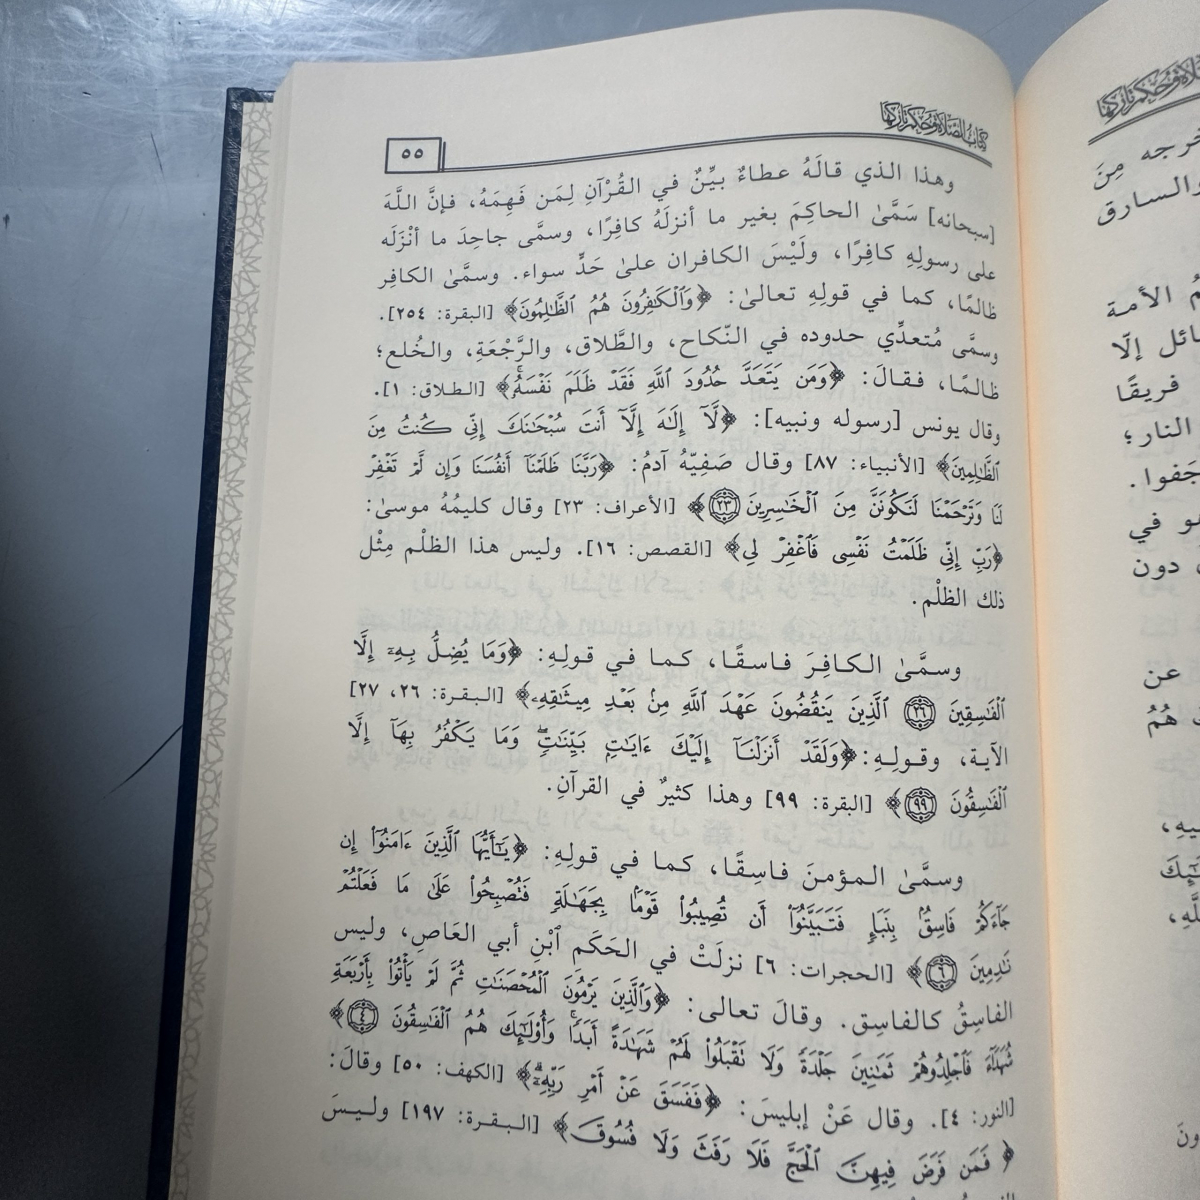 كتاب الصلاة وحكم تاركها
٥٥
وهذا الذي قالَهُ عطاءٌ بيِّنٌ في القُرْآنِ لِمَن فَهِمَهُ، فإنَّ اللَّهَ
[سبحانه] سَمَّىٰ الحاكِمَ بغير ما أنزلَهُ كافِرًا، وسمَّى جاحِدَ ما أنْزَلَه
على رسولِهِ كافِرًا، ولَيْسَ الكافران علىٰ حَدٍّ سواء. وسمَّىٰ الكافِر
ظالمًا، كما في قولِهِ تعالىٰ: ﴿وَٱلْكَٰفِرُونَ هُمُ ٱلظَّٰلِمُونَ﴾ [البقرة: ٢٥٤].
وسمَّى مُتعدِّي حدوده في النّكاح، والطَّلاق، والرَّجْعَةِ، والخُلع؛
ظالمًا، فقالَ: ﴿وَمَن يَتَعَدَّ حُدُودَ ٱللَّهِ فَقَدْ ظَلَمَ نَفْسَهُۥ﴾ [الطلاق: ١].
وقال يونس [رسوله ونبيه]: ﴿لَّآ إِلَٰهَ إِلَّآ أَنتَ سُبْحَٰنَكَ إِنِّى كُنتُ مِنَ
ٱلظَّٰلِمِينَ﴾ [الأنبياء: ٨٧] وقال صَفِيّهُ آدمُ: ﴿رَبَّنَا ظَلَمْنَآ أَنفُسَنَا وَإِن لَّمْ تَغْفِرْ
لَنَا وَتَرْحَمْنَا لَنَكُونَنَّ مِنَ ٱلْخَٰسِرِينَ ٢٣﴾ [الأعراف: ٢٣] وقال كليمُهُ موسىٰ:
﴿رَبِّ إِنِّى ظَلَمْتُ نَفْسِى فَٱغْفِرْ لِى﴾ [القصص: ١٦]. وليس هذا الظلْم مِثْل
ذلك الظلْم.
وسمَّىٰ الكافِرَ فاسقًا، كما في قولِهِ: ﴿وَمَا يُضِلُّ بِهِۦٓ إِلَّا
ٱلْفَٰسِقِينَ ٢٦ ٱلَّذِينَ يَنقُضُونَ عَهْدَ ٱللَّهِ مِنۢ بَعْدِ مِيثَٰقِهِۦ﴾ [البقرة: ٢٦، ٢٧]
الآية، وقولِهِ: ﴿وَلَقَدْ أَنزَلْنَآ إِلَيْكَ ءَايَٰتٍۭ بَيِّنَٰتٍۖ وَمَا يَكْفُرُ بِهَآ إِلَّا
ٱلْفَٰسِقُونَ ٩٩﴾ [البقرة: ٩٩] وهذا كثيرٌ في القرآنِ.
وسمَّىٰ المؤمنَ فاسِقًا، كما في قولِهِ: ﴿يَٰٓأَيُّهَا ٱلَّذِينَ ءَامَنُوٓا۟ إِن
جَآءَكُمْ فَاسِقٌۢ بِنَبَإٍ فَتَبَيَّنُوٓا۟ أَن تُصِيبُوا۟ قَوْمًۢا بِجَهَٰلَةٍ فَتُصْبِحُوا۟ عَلَىٰ مَا فَعَلْتُمْ
نَٰدِمِينَ ٦﴾ [الحجرات: ٦] نزلَتْ في الحَكَم ٱبْنِ أبي العَاصِ، وليس
الفاسِقُ كالفاسِق. وقالَ تعالى: ﴿وَٱلَّذِينَ يَرْمُونَ ٱلْمُحْصَنَٰتِ ثُمَّ لَمْ يَأْتُوا۟ بِأَرْبَعَةِ
شُهَدَآءَ فَٱجْلِدُوهُمْ ثَمَٰنِينَ جَلْدَةً وَلَا تَقْبَلُوا۟ لَهُمْ شَهَٰدَةً أَبَدًاۚ وَأُو۟لَٰٓئِكَ هُمُ ٱلْفَٰسِقُونَ ٤﴾
[النور: ٤]. وقال عَنْ إبليسَ: ﴿فَفَسَقَ عَنْ أَمْرِ رَبِّهِۦٓ﴾ [الكهف: ٥٠] وقالَ:
﴿فَمَن فَرَضَ فِيهِنَّ ٱلْحَجَّ فَلَا رَفَثَ وَلَا فُسُوقَ﴾ [البقرة: ١٩٧] وليسَ
خرجه مِنَ
والسارق
الأمة
إلّا
فريقًا
النار؛
جَفوا.
في
دون
عن
هُمُ